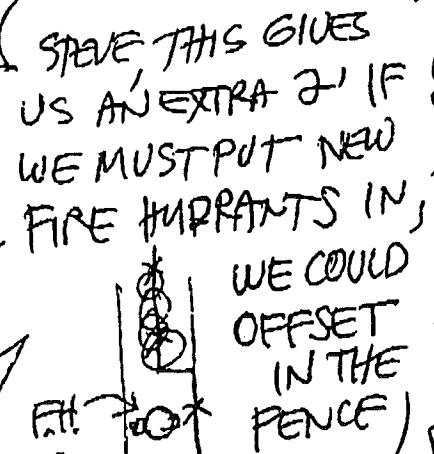 STEVE, THIS GIVES
US AN EXTRA 2' IF
WE MUST PUT NEW
FIRE HYDRANTS IN,
WE COULD
OFFSET
IN THE
FENCE)
F.H.